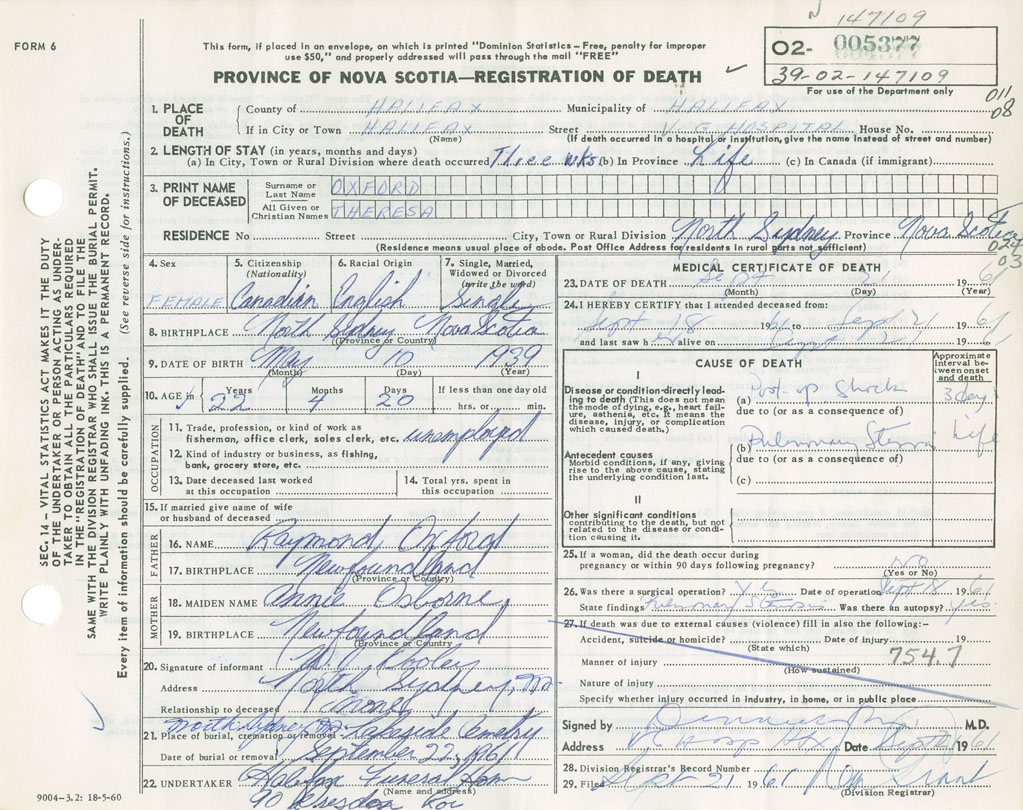 147109
FORM 6
This form, if placed in an envelope, on which is printed "Dominion Statistics – Free, penalty for improper
use $50," and properly addressed will pass through the mail "FREE"
PROVINCE OF NOVA SCOTIA—REGISTRATION OF DEATH
02- 005377
39-02-147109
For use of the Department only
011
08
1. PLACE OF DEATH
County of HALIFAX Municipality of HALIFAX
If in City or Town HALIFAX Street V.G HOSPITAL House No.
(Name) (If death occurred in a hospital or institution, give the name instead of street and number)
2. LENGTH OF STAY (in years, months and days)
(a) In City, Town or Rural Division where death occurred Three wks (b) In Province Life (c) In Canada (if immigrant)
3. PRINT NAME OF DECEASED
Surname or Last Name OXFORD
All Given or Christian Names THERESA
RESIDENCE No. Street City, Town or Rural Division North Sydney Province Nova Scotia
(Residence means usual place of abode. Post Office Address for residents in rural parts not sufficient)
024
03
4. Sex FEMALE
5. Citizenship (Nationality) Canadian
6. Racial Origin English
7. Single, Married, Widowed or Divorced (write the word) Single
8. BIRTHPLACE North Sydney Nova Scotia
(Province or Country)
9. DATE OF BIRTH May 10 1939
(Month) (Day) (Year)
10. AGE in Years 22 Months 4 Days 20 If less than one day old hrs. or min.
OCCUPATION
11. Trade, profession, or kind of work as
fisherman, office clerk, sales clerk, etc. unemployed
12. Kind of industry or business, as fishing,
bank, grocery store, etc.
13. Date deceased last worked at this occupation
14. Total yrs. spent in this occupation
15. If married give name of wife
or husband of deceased
FATHER
16. NAME Raymond Oxford
17. BIRTHPLACE Newfoundland
(Province or Country)
MOTHER
18. MAIDEN NAME Annie Osborne
19. BIRTHPLACE Newfoundland
(Province or Country)
20. Signature of informant
Address North Sydney,
Relationship to deceased
North Sydney
21. Place of burial, cremation or removal Lakeside Cemetry
Date of burial or removal September 22, 1961
22. UNDERTAKER Halifax Funeral Home
(Name and address)
90
9004-3.2: 18-5-60
SEC. 14 – VITAL STATISTICS ACT MAKES IT THE DUTY
OF THE UNDERTAKER OR PERSON ACTING AS UNDER-
TAKER TO OBTAIN ALL THE PARTICULARS REQUIRED
IN THE "REGISTRATION OF DEATH" AND TO FILE THE
SAME WITH THE DIVISION REGISTRAR WHO SHALL ISSUE THE BURIAL PERMIT.
WRITE PLAINLY WITH UNFADING INK. THIS IS A PERMANENT RECORD.
Every item of information should be carefully supplied. (See reverse side for instructions.)
MEDICAL CERTIFICATE OF DEATH
23. DATE OF DEATH Sept 21 1961
(Month) (Day) (Year)
24. I HEREBY CERTIFY that I attended deceased from:
Sept 18 1961 to Sept 21 1961
and last saw h alive on Sept 21 1961
CAUSE OF DEATH
Approximate interval between onset and death
I
Disease or condition directly lead-
ing to death (This does not mean
the mode of dying, e.g., heart fail-
ure, asthenia, etc. It means the
disease, injury, or complication
which caused death.)
(a) Post-op Shock 3 days
due to (or as a consequence of)
Antecedent causes
Morbid conditions, if any, giving
rise to the above cause, stating
the underlying condition last.
(b) Pulmonary Stenosis Life
due to (or as a consequence of)
(c)
II
Other significant conditions
contributing to the death, but not
related to the disease or condi-
tion causing it.
25. If a woman, did the death occur during
pregnancy or within 90 days following pregnancy? NO
(Yes or No)
26. Was there a surgical operation? Yes Date of operation Sept 18 1961
State findings Pulmonary Stenosis Was there an autopsy? Yes
27. If death was due to external causes (violence) fill in also the following:-
Accident, suicide or homicide? Date of injury 19
(State which)
754.7
Manner of injury
(How sustained)
Nature of injury
Specify whether injury occurred in industry, in home, or in public place
Signed by M.D.
Address V.G Hosp Hfx Date Sept 21 1961
28. Division Registrar's Record Number
29. Filed Sept 21 1961 Grant
(Division Registrar)